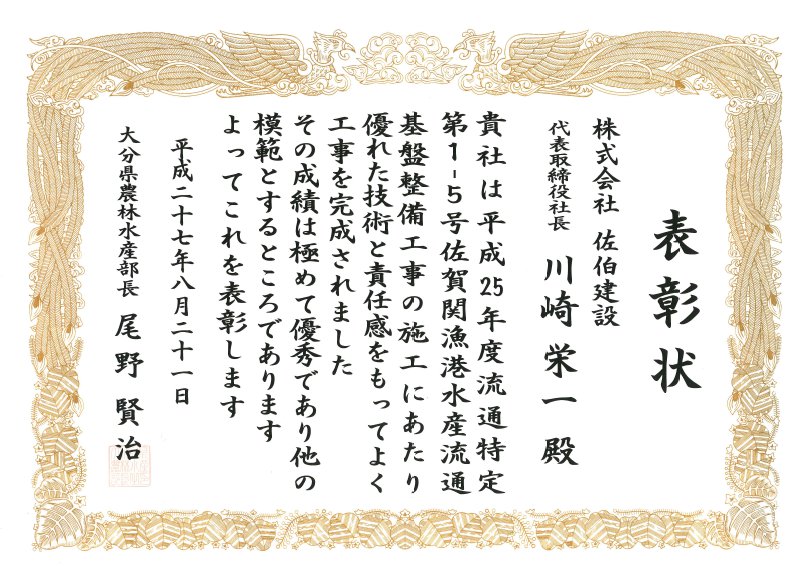 表彰状
株式会社 佐伯建設
代表取締役社長 川崎 栄一 殿
貴社は平成25年度流通特定
第1-5号佐賀関漁港水産流通
基盤整備工事の施工にあたり
優れた技術と責任感をもってよく
工事を完成されました
その成績は極めて優秀であり他の
模範とするところであります
よってこれを表彰します
平成二十七年八月二十一日
大分県農林水産部長 尾野 賢治